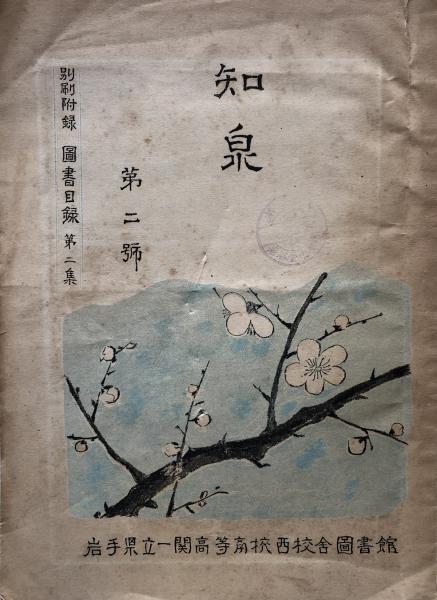 知泉
第二號
別刷附録 圖書目録 第二集
岩手県立一関高等斈校西校舎圖書館